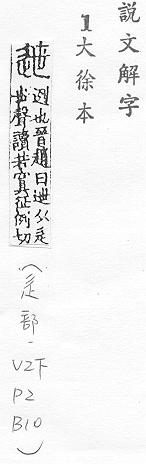 說文解字
1大徐本
迾也晉趙曰迣从辵
世聲讀若寘征例切
(辵部-V2下P2B10)